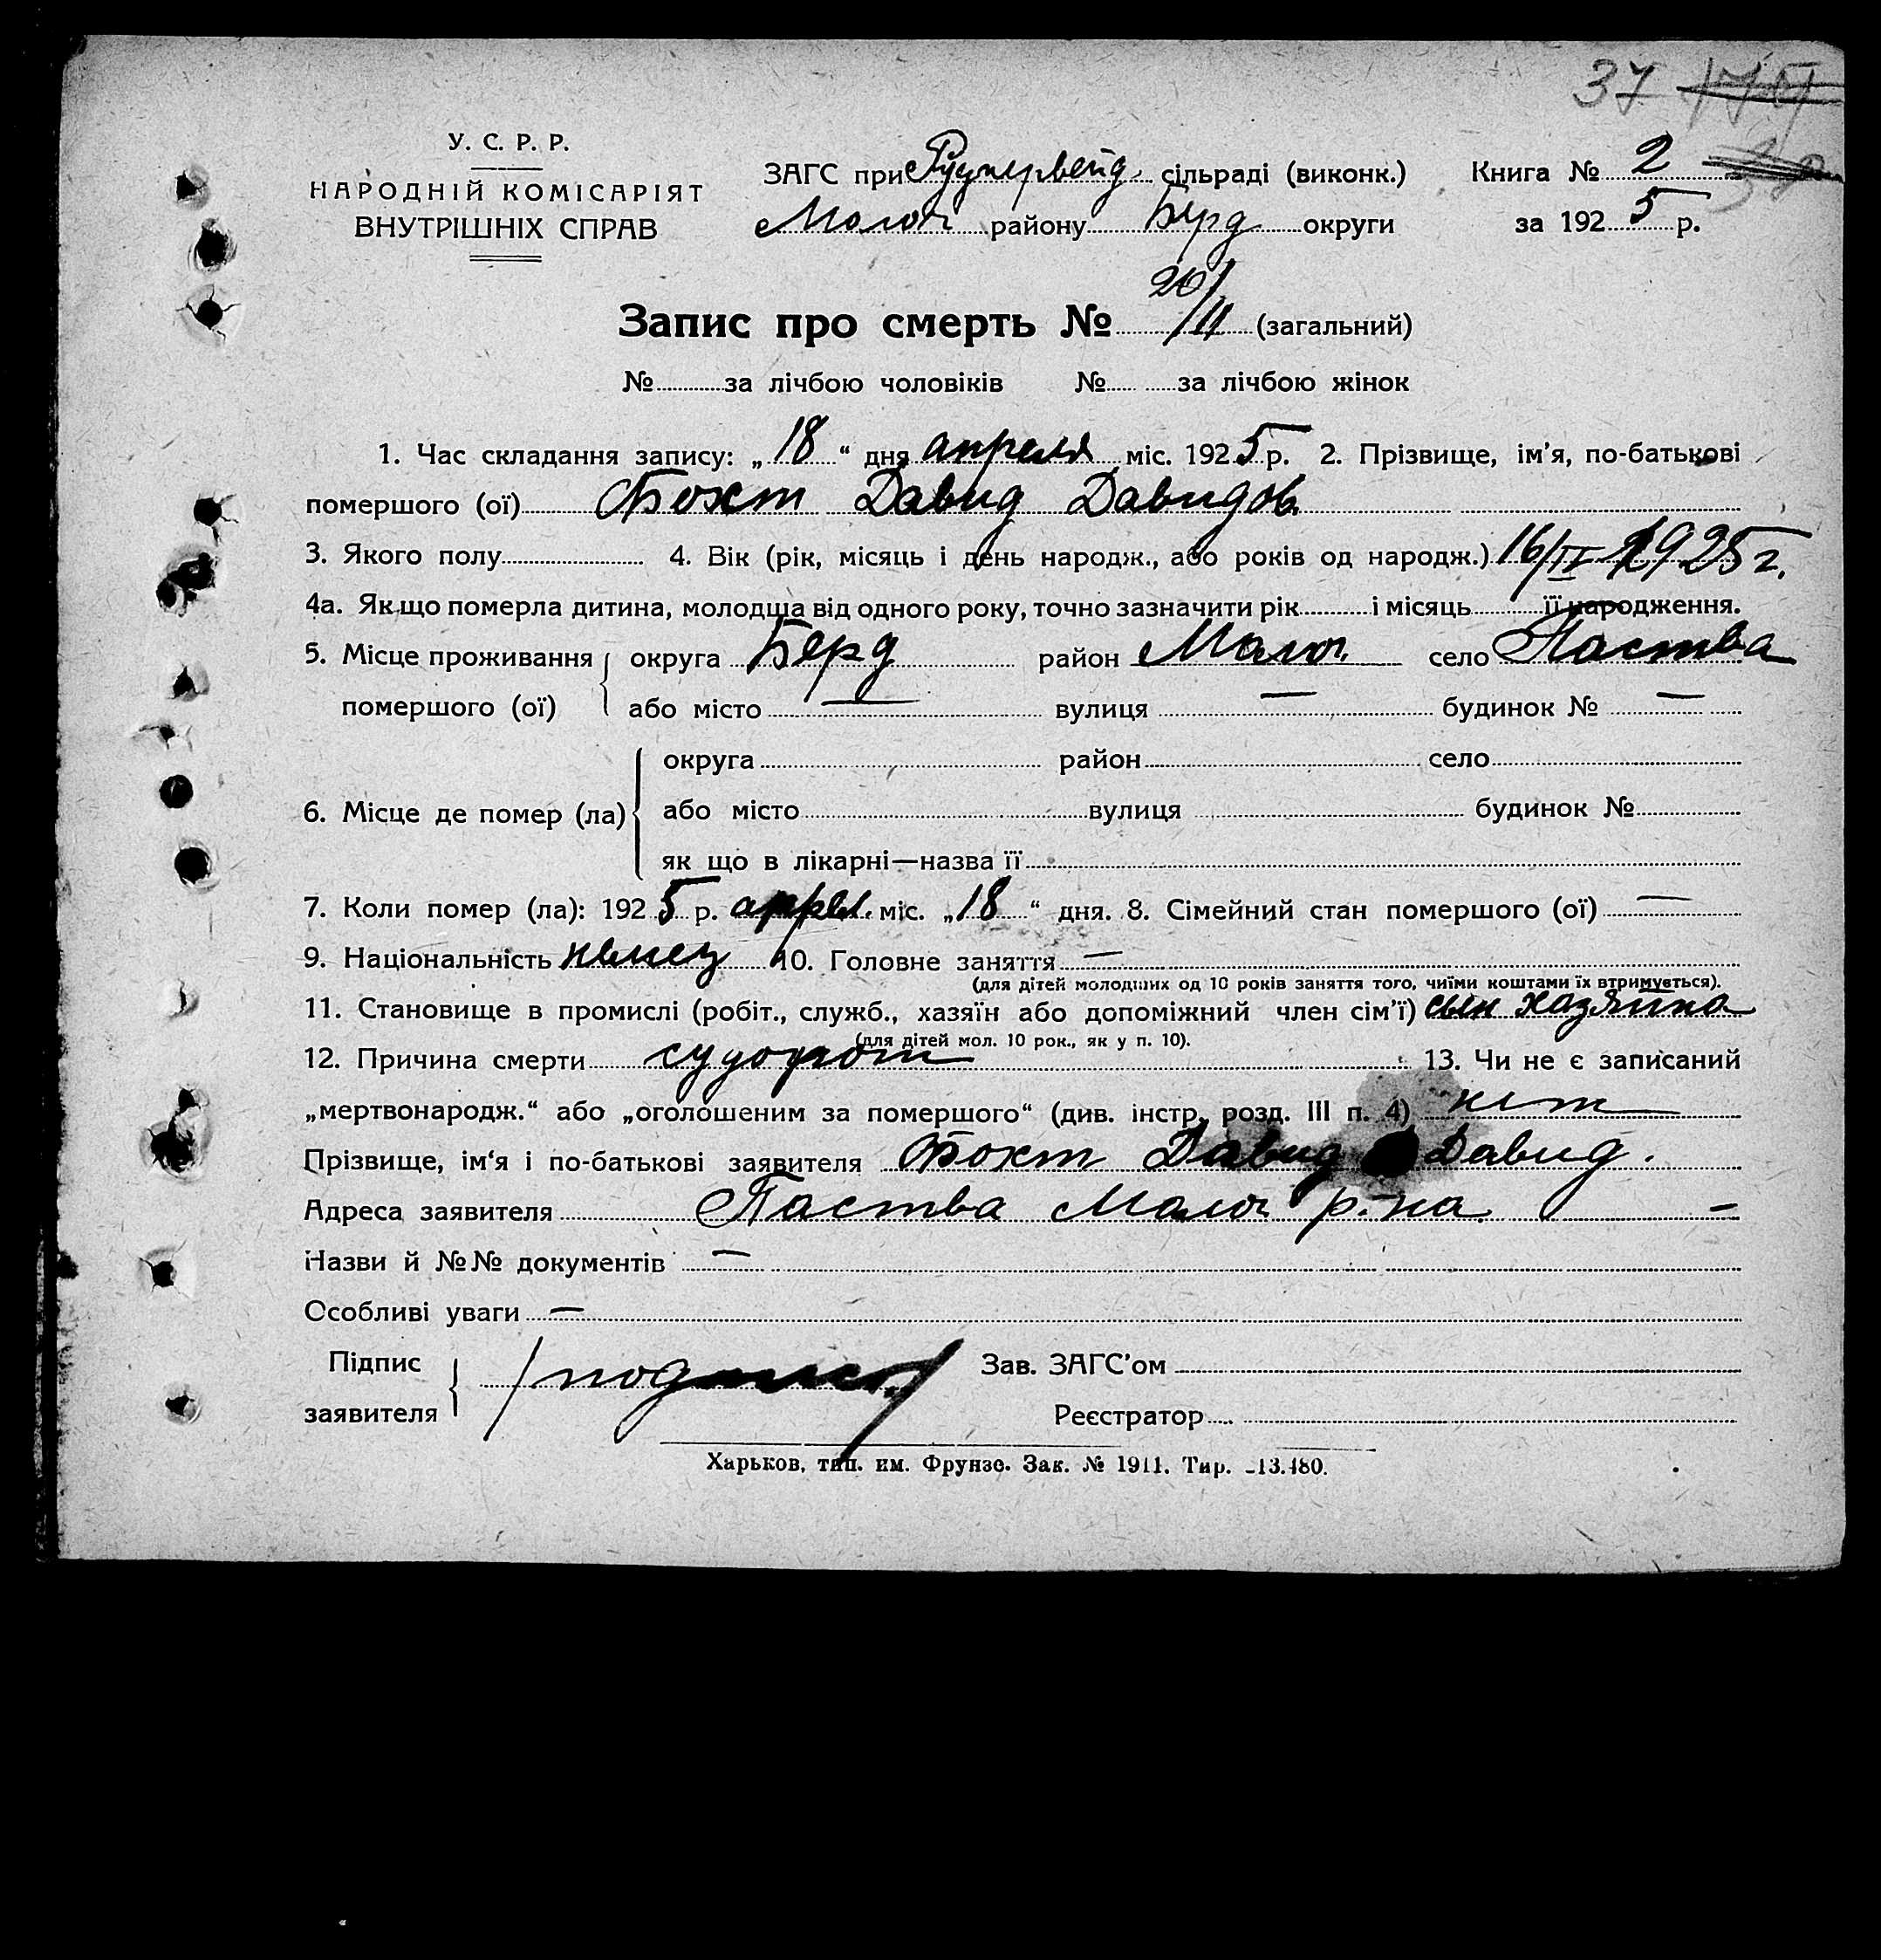 37
У. С. Р. Р.
НАРОДНІЙ КОМІСАРІЯТ
ВНУТРІШНІХ СПРАВ
ЗАГС при Руднервейд. сільраді (виконк.) Книга № 2
Молоч району Берд округи за 1925 р.
Запис про смерть № 20/11 (загальний)
№ за лічбою чоловіків № за лічбою жінок
1. Час складання запису: „18“ дня апреля міс. 1925 р. 2. Прізвище, ім’я, по-батькові
помершого (ої) Бохт Давид Давидов.
3. Якого полу 4. Вік (рік, місяць і день народж., або років од народж.) 16/IV 1925 г.
4а. Якщо померла дитина, молодша від одного року, точно зазначити рік і місяць її народження.
5. Місце проживання округа Берд район Молоч. село Паства
помершого (ої) або місто — вулиця — будинок № —
округа район село
6. Місце де помер (ла) або місто вулиця будинок №
як що в лікарні—назва її
7. Коли помер (ла): 1925 р. апрел. міс. „18“ дня. 8. Сімейний стан помершого (ої) —
9. Національність немец 10. Головне заняття —
(для дітей молодших од 10 років заняття того, чиїми коштами їх втримується).
11. Становище в промислі (робіт., служб., хазяїн або допоміжний член сім’ї) сын хозяйна
(для дітей мол. 10 рок., як у п. 10).
12. Причина смерти судорот 13. Чи не є записаний
„мертвонародж.“ або „оголошеним за помершого“ (див. інстр. розд. III п. 4) нет
Прізвище, ім‘я і по-батькові заявителя Бохт Давид Давид.
Адреса заявителя Паства Молоч р-на —
Назви й №№ документів —
Особливі уваги —
Підпис Зав. ЗАГС’ом
/подпись/
заявителя Реєстратор
Харьков, тип. им. Фрунзе. Зак. № 1911. Тир. -13.480.